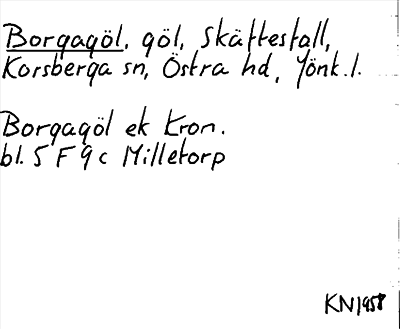 Borgagöl, göl, Skättestall,
Korsberga sn, Östra hd, Jönk.l.
Borgagöl ek Kron.
bl. 5 F 9 c Milletorp
KN1958